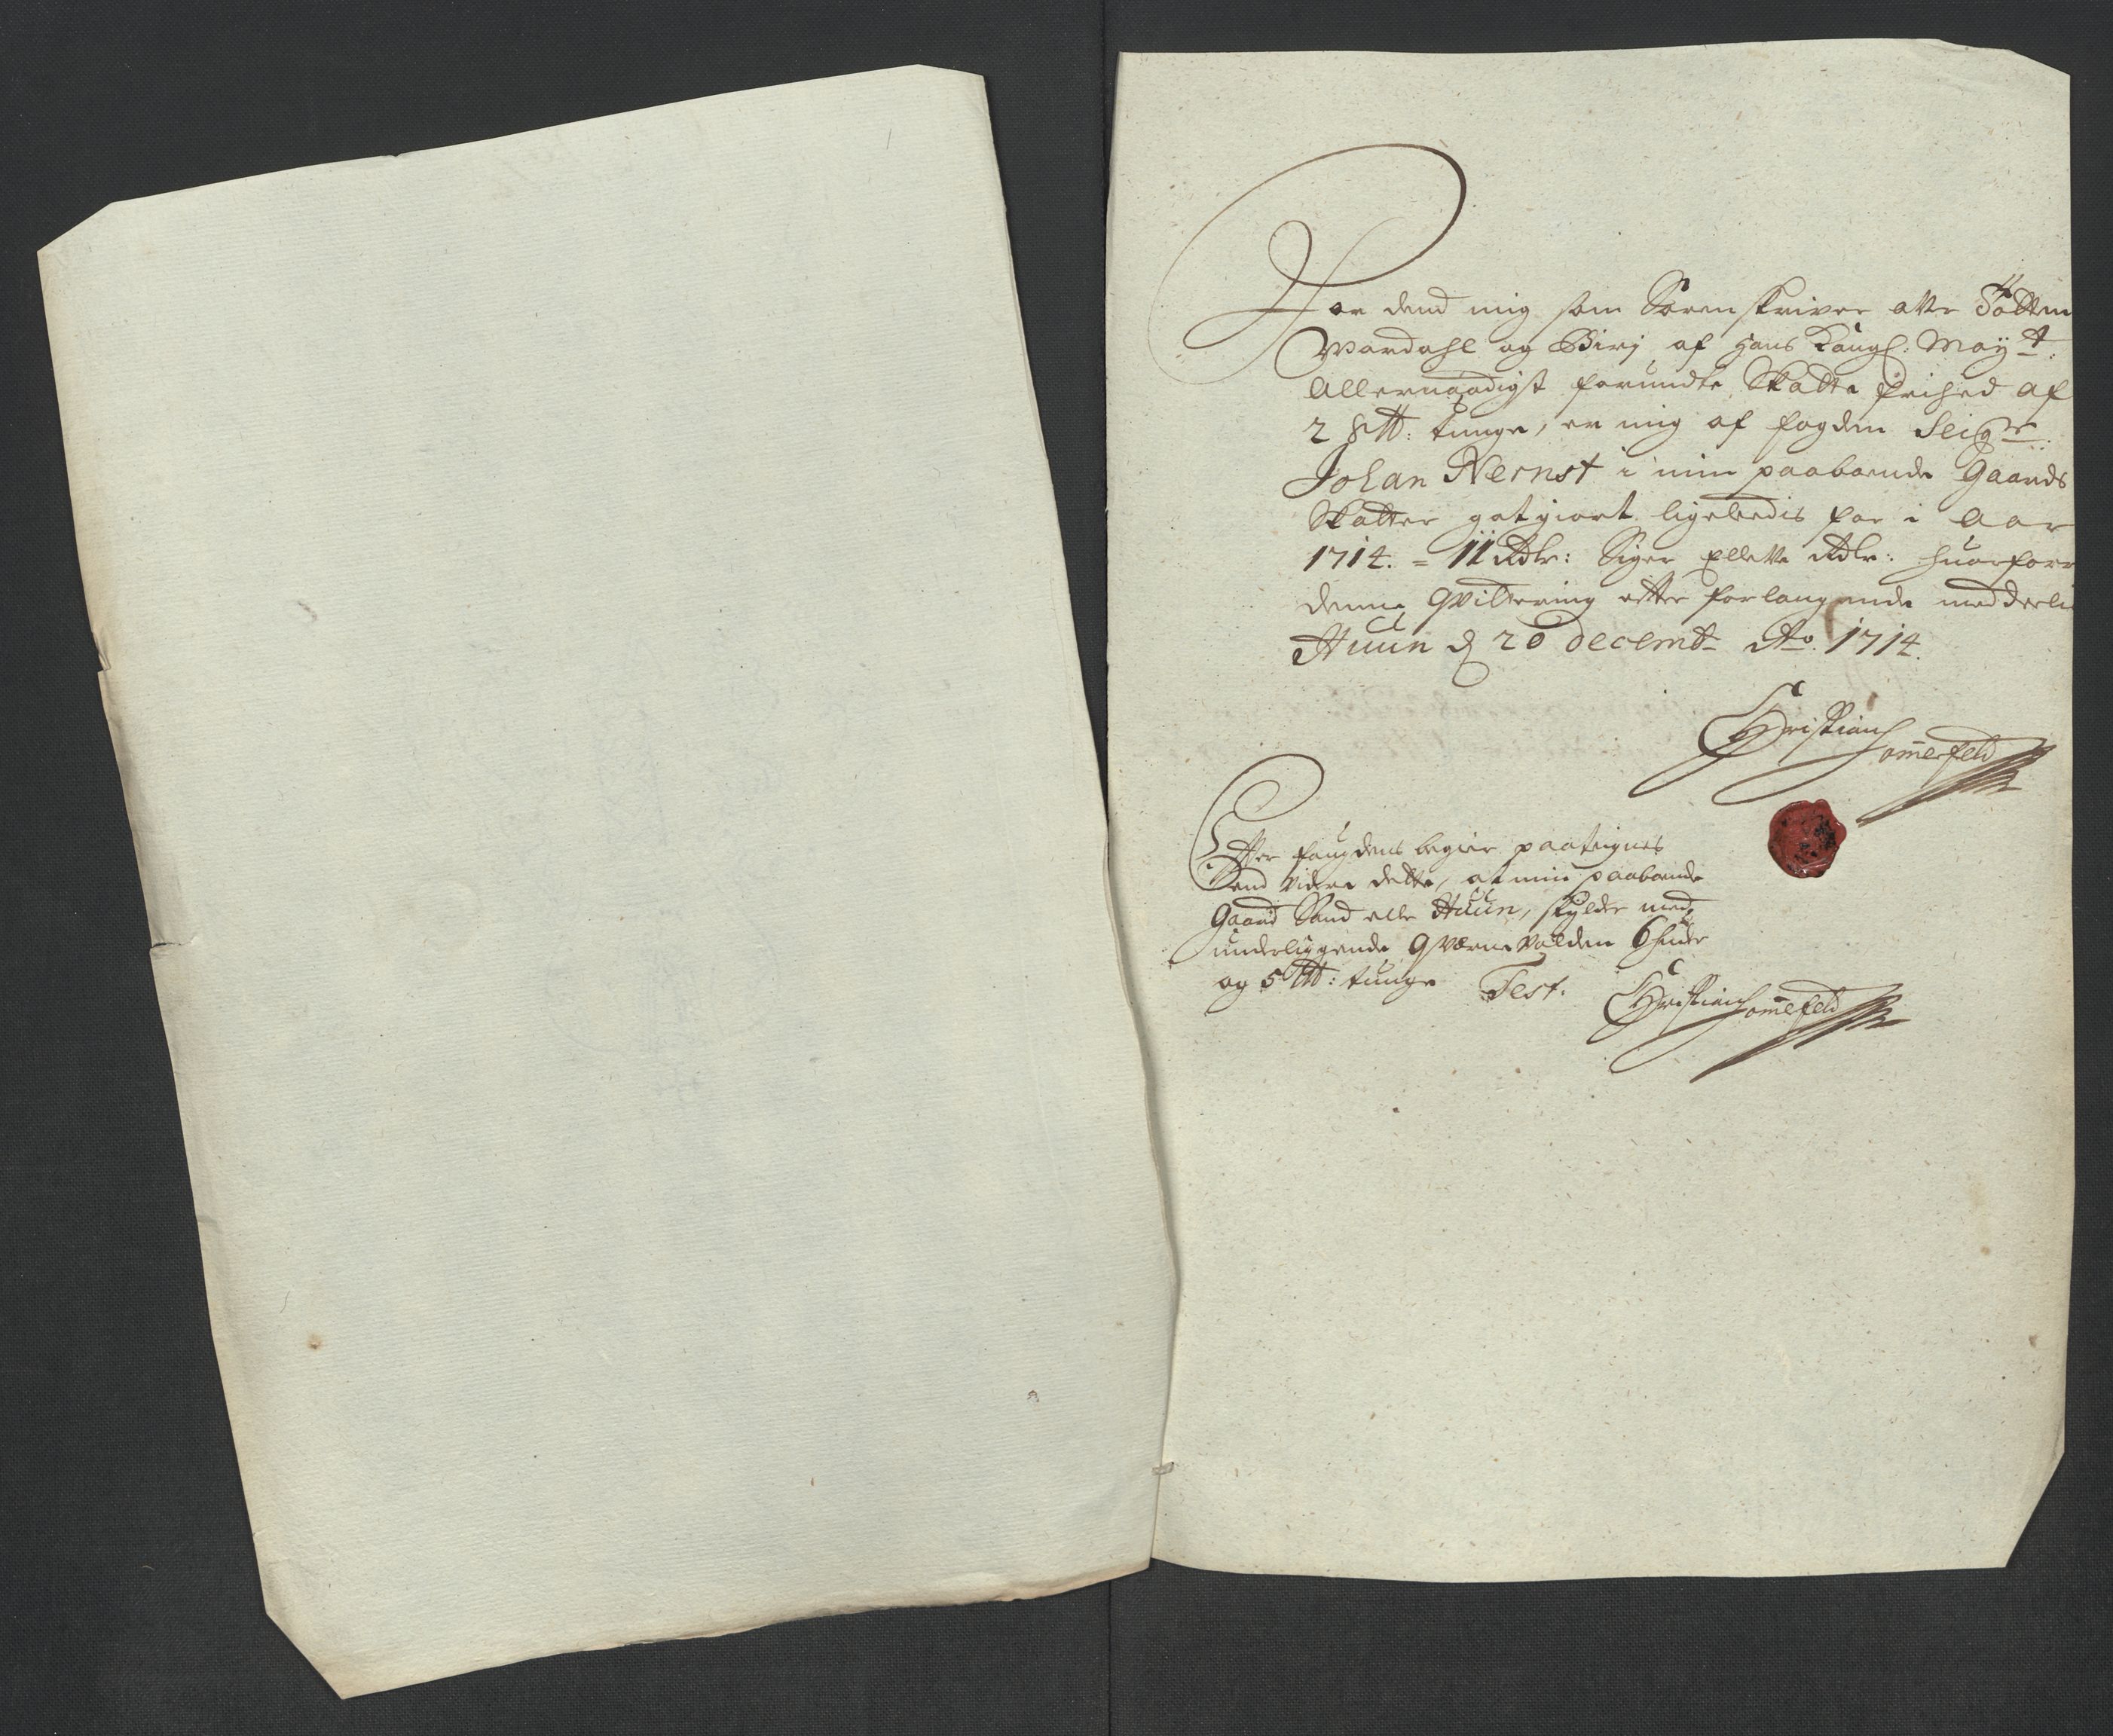 For dend mig som Sorenskriver over Totten
Wardahl og Birj af Hans Kongl: May:t
Allernaadigst forundte Skatte frihed af
2 hunder tunge, er mig af fogden Seig:r
Johan Nernst i min paaboende Gaards
Skatter gotgiort ligeleedis for i Aar
1714. = 11 Rdlr: Siger Elleve Rdlr: huorforr
denne Qvittering effter forlangende meddeelis
Huun d 20 Decembr Ao. 1714.
Christian Somerfeld
Effter fougdens begier paateignes
End videre dette, at min paaboende
Gaard Sand eller Huun, skylder med
underliggende Qværne Volden 6 huder
og 5 : tunge Test.
Christian Somerfeld